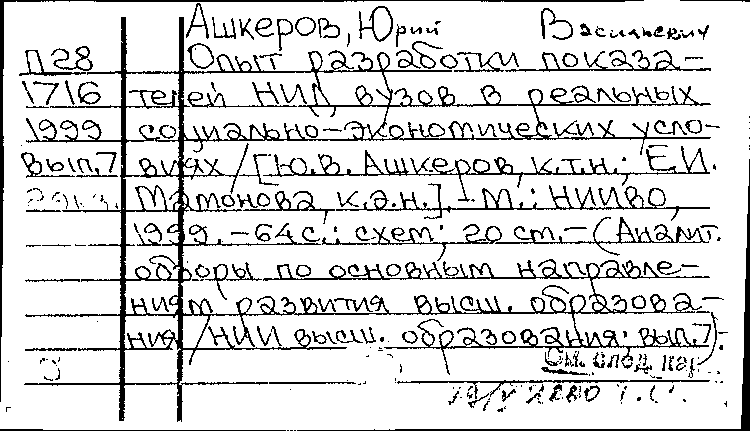 Ашкеров, Юрий Васильевич
П28 Опыт разработки показа-
1716 телей НИД вузов в реальных
1999 социально-экономических усло-
вып.7 виях / [Ю.В. Ашкеров, к.т.н.; Е.И.
2экз. Мамонова, к.э.н.]. - М.: НИИВО,
1999. - 64 с.: схем; 20 см. - (Аналит.
обзоры по основным направле-
ниям развития высш. образова-
ния / НИИ высш. образования; вып.7).
См. след. кар.